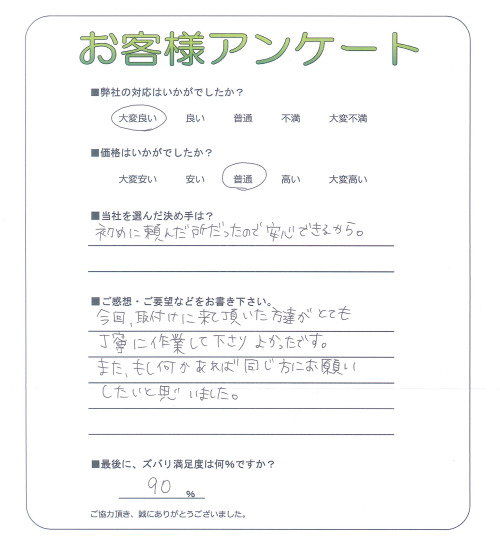 お客様アンケート
■弊社の対応はいかがでしたか？
大変良い 良い 普通 不満 大変不満
■価格はいかがでしたか？
大変安い 安い 普通 高い 大変高い
■当社を選んだ決め手は？
初めに頼んだ所だったので安心できるから。
■ご感想・ご要望などをお書き下さい。
今回、取付けに来て頂いた方達がとても
丁寧に作業して下さりよかったです。
また、もし何かあれば同じ方にお願い
したいと思いました。
■最後に、ズバリ満足度は何%ですか？
90 %
ご協力頂き、誠にありがとうございました。